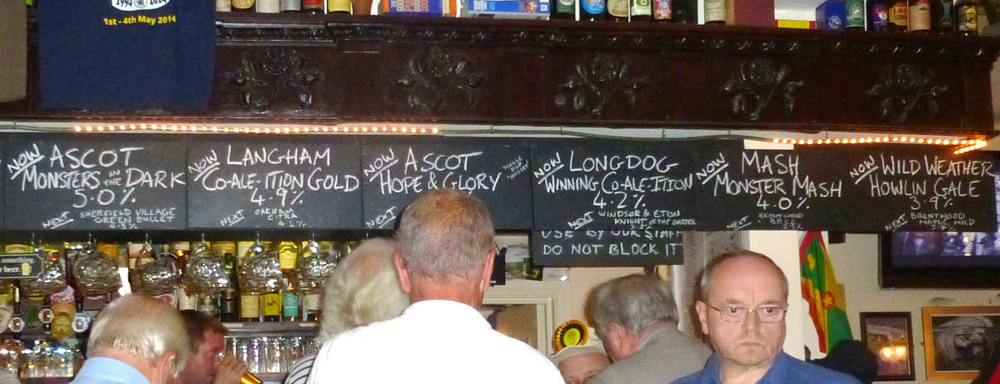 1994 2014
1st - 4th May 2014
NOW ASCOT
MONSTERS IN THE DARK
5.0%
NEXT SHEREFIELD VILLAGE
GREEN BULLET
NOW LANGHAM
CO-ALE-ITION GOLD
4.9%
NEXT OAKHAM
CITRA
NOW ASCOT
HOPE & GLORY
NEXT
NOW LONGDOG
WINNING CO-ALE-ITION
4.2%
NEXT WINDSOR & ETON
KNIGHT OF THE GARTER
USE BY OUR STAFF
DO NOT BLOCK IT
NOW MASH
MONSTER MASH
4.0%
NEXT BRENTWOOD
NOW WILD WEATHER
HOWLIN GALE
3.9%
NEXT BRENTWOOD
MAPLE MILD
something
beer.